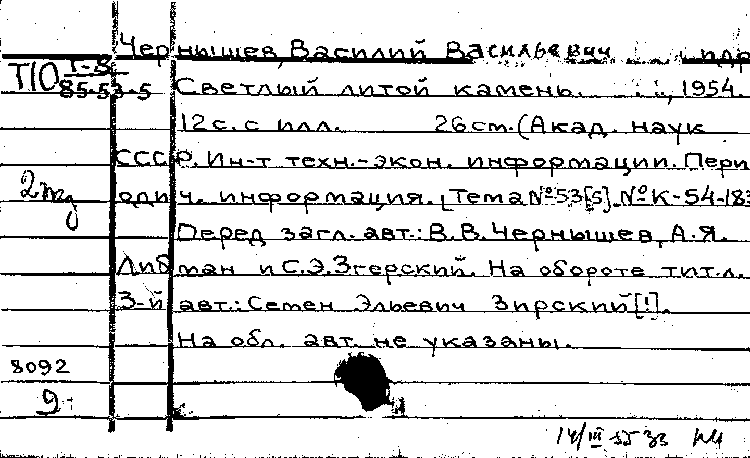 Чернышев, Василий Васильевич и др
Т10 Т-8
85-53-5
Светлый литой камень. , 1954.
12 с. с илл. 26 см. (Акад. наук
СССР. Ин-т техн.-экон. информации. Пери
одич. информация. [Тема № 53[5]. № К-54-183
Перед загл. авт.: В.В.Чернышев, А.Я.
Либман и С.Э.Згерский. На обороте тит.л.
3-й авт.: Семен Эльевич Зирский[!].
На обл. авт. не указаны.
8092
9
14/III 55